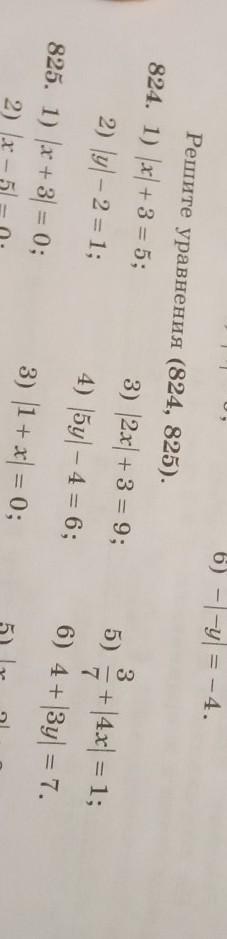 6) −|−y| = −4.
Решите уравнения (824, 825).
824. 1) |x| + 3 = 5; 3) |2x| + 3 = 9; 5) 3/7 + |4x| = 1;
2) |y| − 2 = 1; 4) |5y| − 4 = 6; 6) 4 + |3y| = 7.
825. 1) |x + 3| = 0; 3) |1 + x| = 0; 5)
2) |x − 5| = 0;